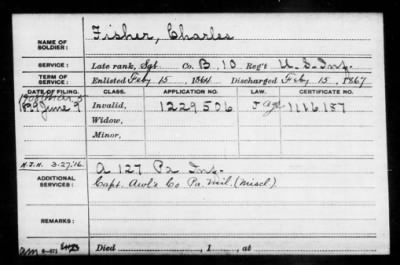 NAME OF SOLDIER: Fisher, Charles
SERVICE: Late rank, Sgt. Co. B, 10 Reg't U. S. Inf.
TERM OF SERVICE: Enlisted Feby 15, 1864 Discharged Feby. 15, 1867
DATE OF FILING. CLASS. APPLICATION NO. LAW. CERTIFICATE NO.
June 9 Invalid, 1229506 1116187
Widow,
Minor,
3.27.'16
ADDITIONAL SERVICES: A 127 Pa Inf.
Capt. Co Pa. Mil. (Miscl)
REMARKS:
Died , 1 , at